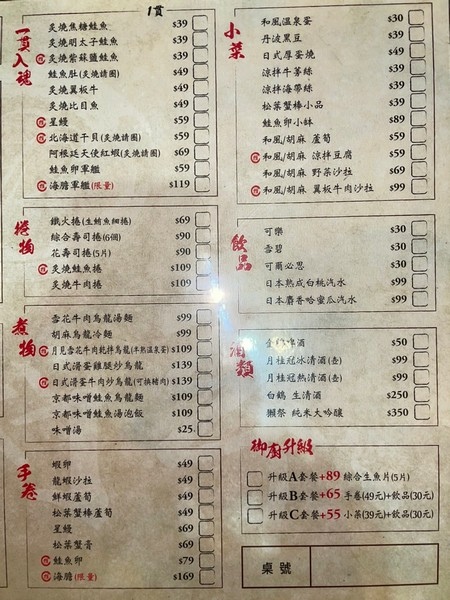 1貫
一貫入魂
炙燒焦糖鮭魚 $39
炙燒明太子鮭魚 $39
炙燒紫蘇鹽鮭魚 $39
鮭魚肚(炙燒請圈) $49
炙燒翼板牛 $49
炙燒比目魚 $49
星鰻 $59
北海道干貝(炙燒請圈) $59
阿根廷天使紅蝦(炙燒請圈) $69
鮭魚卵軍艦 $59
海膽軍艦(限量) $119
捲物
鐵火捲(生鮪魚細捲) $69
綜合壽司捲(6個) $90
花壽司捲(5片) $90
炙燒鮭魚捲 $109
炙燒牛肉捲 $109
煮物
雪花牛肉烏龍湯麵 $99
胡麻烏龍冷麵 $99
月見雪花牛肉乾拌烏龍(半熟溫泉蛋) $109
日式滑蛋雞腿炒烏龍 $139
日式滑蛋牛肉炒烏龍(可換豬肉) $139
京都味噌鮭魚烏龍麵 $109
京都味噌鮭魚湯泡飯 $109
味噌湯 $25
手卷
蝦卵 $49
龍蝦沙拉 $49
鮮蝦蘆筍 $49
松葉蟹棒蘆筍 $49
星鰻 $69
松葉蟹膏 $69
鮭魚卵 $79
海膽(限量) $169
小菜
和風溫泉蛋 $30
丹波黑豆 $39
日式厚蛋燒 $49
涼拌牛蒡絲 $39
涼拌海帶絲 $39
松葉蟹棒小品 $39
鮭魚卵小缽 $89
和風/胡麻 蘆筍 $59
和風/胡麻 涼拌豆腐 $59
和風/胡麻 野菜沙拉 $69
和風/胡麻 翼板牛肉沙拉 $99
飲品
可樂 $30
雪碧 $30
可爾必思 $30
日本熟成白桃汽水 $99
日本麝香哈蜜瓜汽水 $99
酒類
啤酒 $50
月桂冠冰清酒(壺) $99
月桂冠熱清酒(壺) $99
白鶴 生清酒 $250
獺祭 純米大吟釀 $350
御廚升級
升級A套餐+89 綜合生魚片(5片)
升級B套餐+65 手卷(49元)+飲品(30元)
升級C套餐+55 小菜(39元)+飲品(30元)
桌號